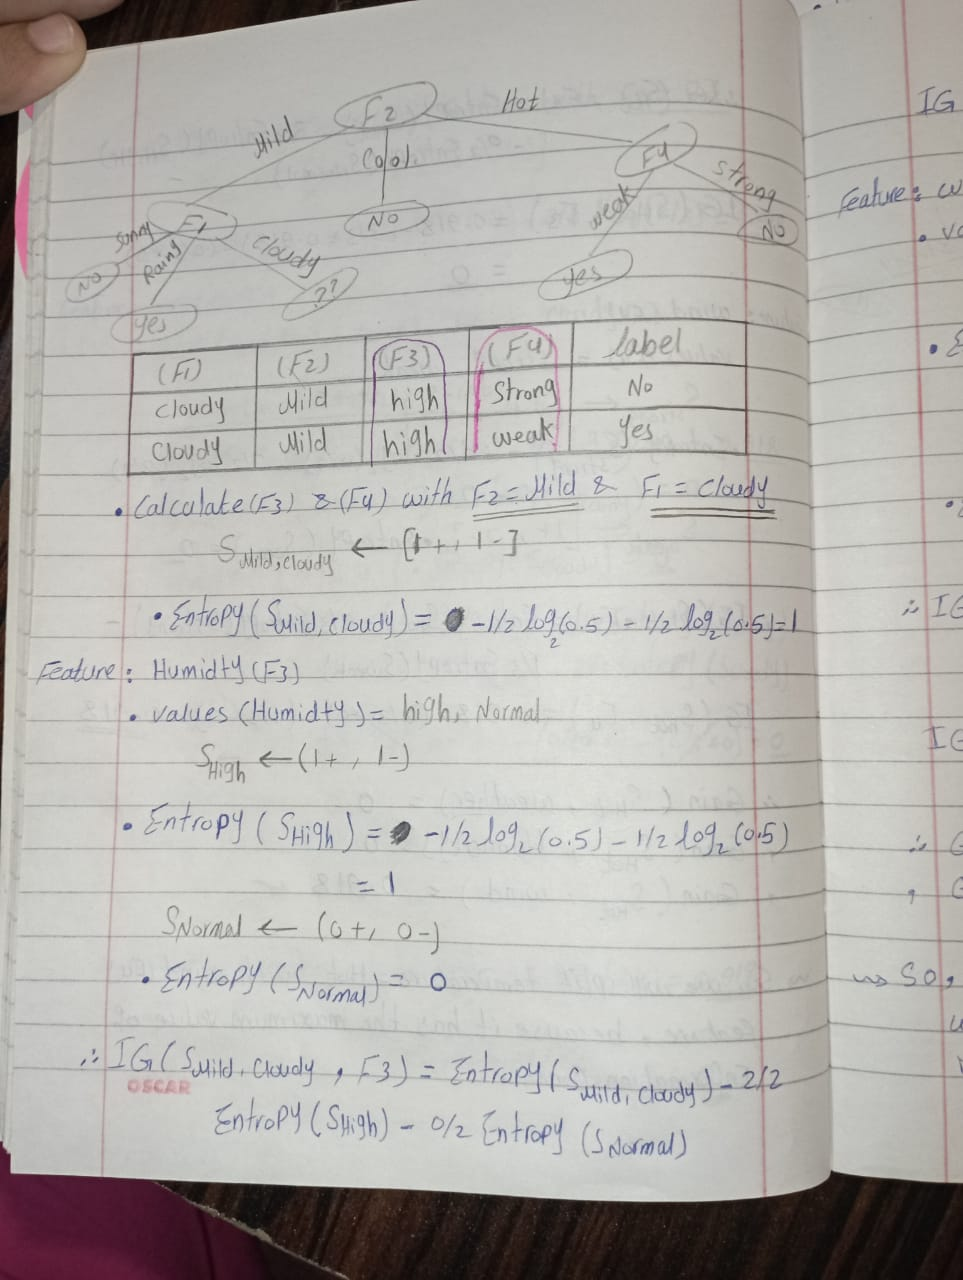 F2
Hot
Mild
Cool
F4
weak
strong
No
No
yes
F1
sunny
Rainy
Cloudy
No
yes
??
(F1) (F2) (F3) (F4) label
Cloudy Mild high Strong No
Cloudy Mild high weak yes
• Calculate (F3) & (F4) with F2 = Mild & F1 = Cloudy
S Mild, Cloudy ← [1+, 1-]
• Entropy (S Mild, Cloudy) = -1/2 log2 (0.5) - 1/2 log2 (0.5) = 1
Feature: Humidty (F3)
• values (Humidty) = high, Normal
S High ← (1+, 1-)
• Entropy (S High) = -1/2 log2 (0.5) - 1/2 log2 (0.5)
= 1
S Normal ← (0+, 0-)
• Entropy (S Normal) = 0
∴ IG (S Mild, Cloudy, F3) = Entropy (S Mild, Cloudy) - 2/2
OSCAR
Entropy (S High) - 0/2 Entropy (S Normal)
IG
Feature:
∴ IG
IG
So,